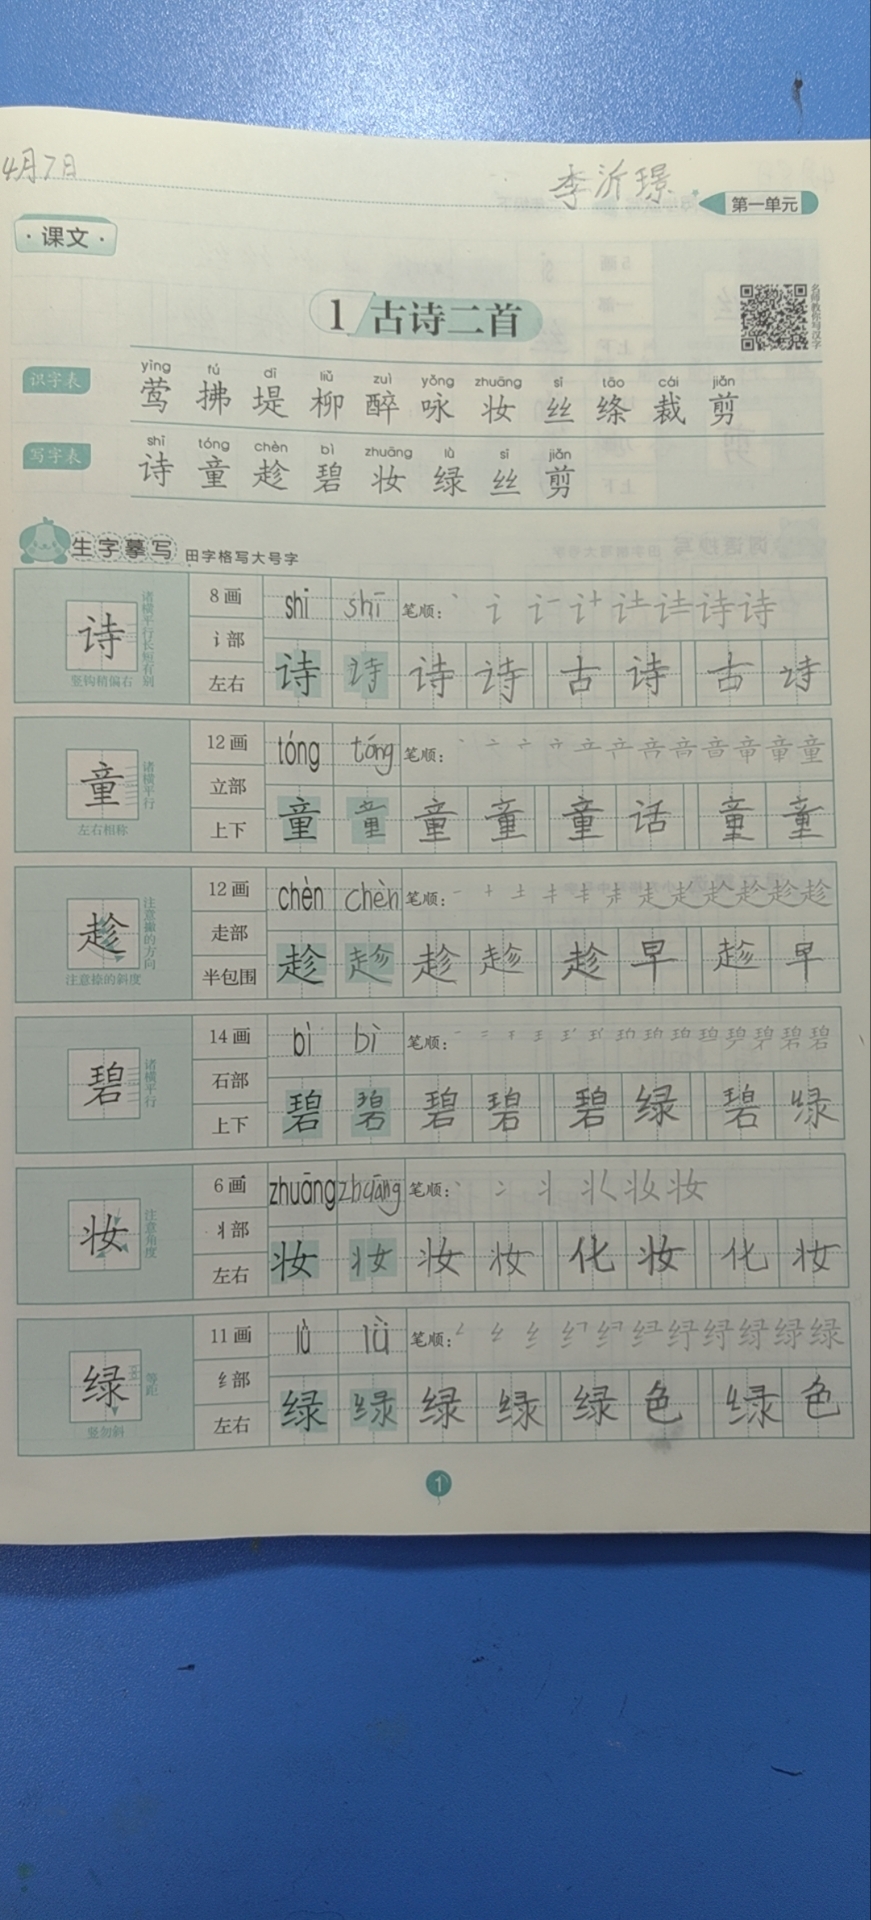 4月7日
李沂璟
第一单元
·课文·
名师教你写汉字
1 古诗二首
yīng fú dī liǔ zuì yǒng zhuāng sī tāo cái jiǎn
识字表 莺 拂 堤 柳 醉 咏 妆 丝 绦 裁 剪
shī tóng chèn bì zhuāng lǜ sī jiǎn
写字表 诗 童 趁 碧 妆 绿 丝 剪
生字摹写 田字格写大号字
诗 诸横平行长短有别 竖钩稍偏右
8画 shī shī 笔顺：丶 讠 诗 诗
讠部
左右 诗 诗 诗 诗 古 诗 古 诗
童 诸横平行 左右相称
12画 tóng tóng 笔顺：丶 亠 立 音 童
立部
上下 童 童 童 童 童 话 童 童
趁 注意撇的方向 注意捺的斜度
12画 chèn chèn 笔顺：一 十 土 走 趁 趁
走部
半包围 趁 趁 趁 趁 趁 早 趁 早
碧 诸横平行
14画 bì bì 笔顺：一 二 王 珀 碧 碧
石部
上下 碧 碧 碧 碧 碧 绿 碧 绿
妆 注意角度
6画 zhuāng zhuāng 笔顺：丶 冫 丬 妆 妆
丬部
左右 妆 妆 妆 妆 化 妆 化 妆
绿 等距 竖勿斜
11画 lǜ lǜ 笔顺：纟 绿 绿
纟部
左右 绿 绿 绿 绿 绿 色 绿 色
1